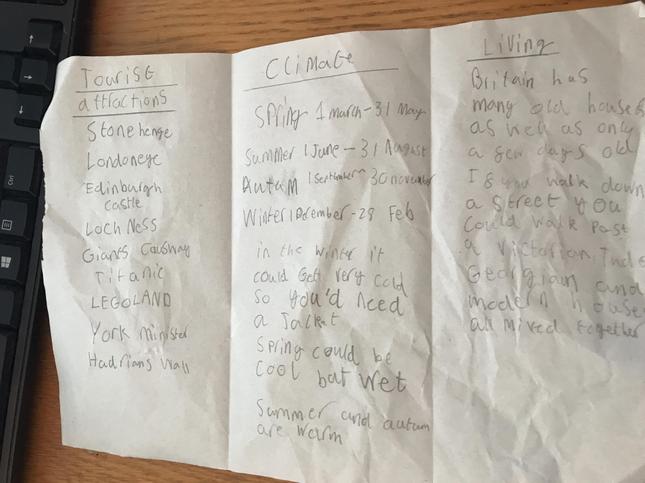 Tourist
attractions
Stonehenge
Londoneye
Edinburgh
castle
Loch Ness
Giants Causway
Titanic
LEGOLAND
York minister
Hadrians Wall
Climate
Spring 1 march - 31 May
Summer 1 June - 31 August
Autam 1 September 30 november
Winter 1 December - 28 Feb
in the winter it
could get very cold
so you'd need
a Jacket
Spring could be
cool but wet
Summer and autum
are warm
Living
Britain has
many old houses
as well as only
a few days old
If you walk down
a street you
could walk past
a victorian, Tude
Georgian and
modern house
all mixed together
Ctrl